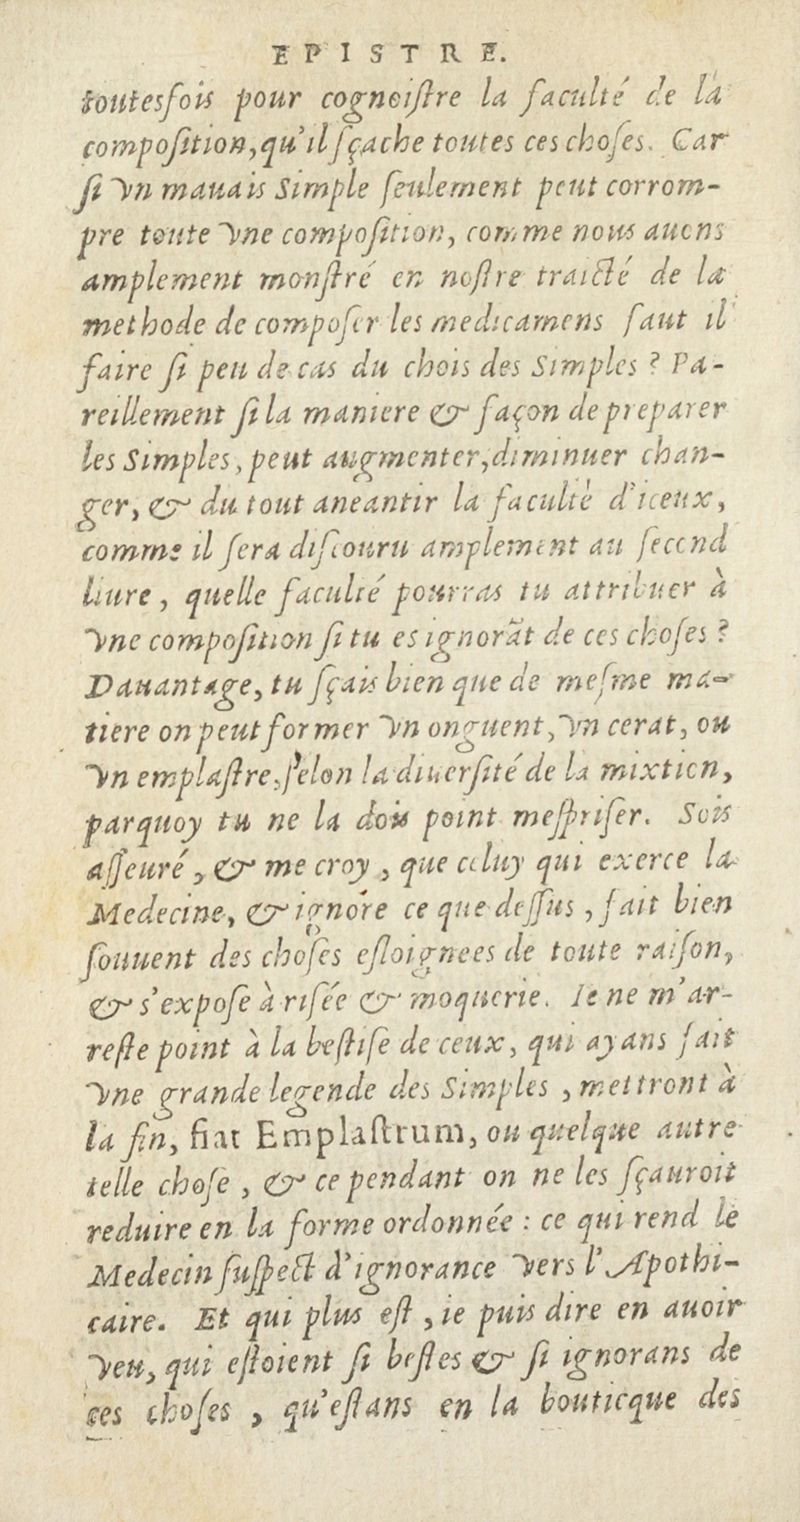 EPISTRE.
toutesfois pour cognoiſtre la faculté de la
compoſition, qu'il ſçache toutes ces choſes. Car
ſi vn mauais Simple ſeulement peut corrom-
pre toute vne compoſition, comme nous auons
amplement monſtré en noſtre traicté de la
methode de compoſer les medicamens faut il
faire ſi peu de cas du chois des Simples ? Pa-
reillement ſi la maniere & façon de preparer
les Simples, peut augmenter, diminuer chan-
ger, & du tout aneantir la faculté d'iceux,
comme il ſera diſcouru amplement au ſecond
liure, quelle faculté pourras tu attribuer à
vne compoſition ſi tu es ignorãt de ces choſes ?
Dauantage, tu ſçais bien que de meſme ma-
tiere on peut former vn onguent, vn cerat, ou
vn emplaſtre, ſelon la diuerſité de la mixtion,
parquoy tu ne la dois point meſpriſer. Sois
aſſeuré, & me croy, que celuy qui exerce la
Medecine, & ignore ce que deſſus, fait bien
ſouuent des choſes eſloignees de toute raiſon,
& s'expoſe à riſée & moquerie. Ie ne m'ar-
reſte point à la beſtiſe de ceux, qui ayans fait
vne grande legende des Simples, mettront à
la fin, fiat Emplaſtrum, ou quelque autre
telle choſe, & ce pendant on ne les ſçauroit
reduire en la forme ordonnée : ce qui rend le
Medecin ſuſpect d'ignorance vers l'Apothi-
caire. Et qui plus eſt, ie puis dire en auoir
veu, qui eſtoient ſi beſtes & ſi ignorans de
ces choſes, qu'eſtans en la bouticque des